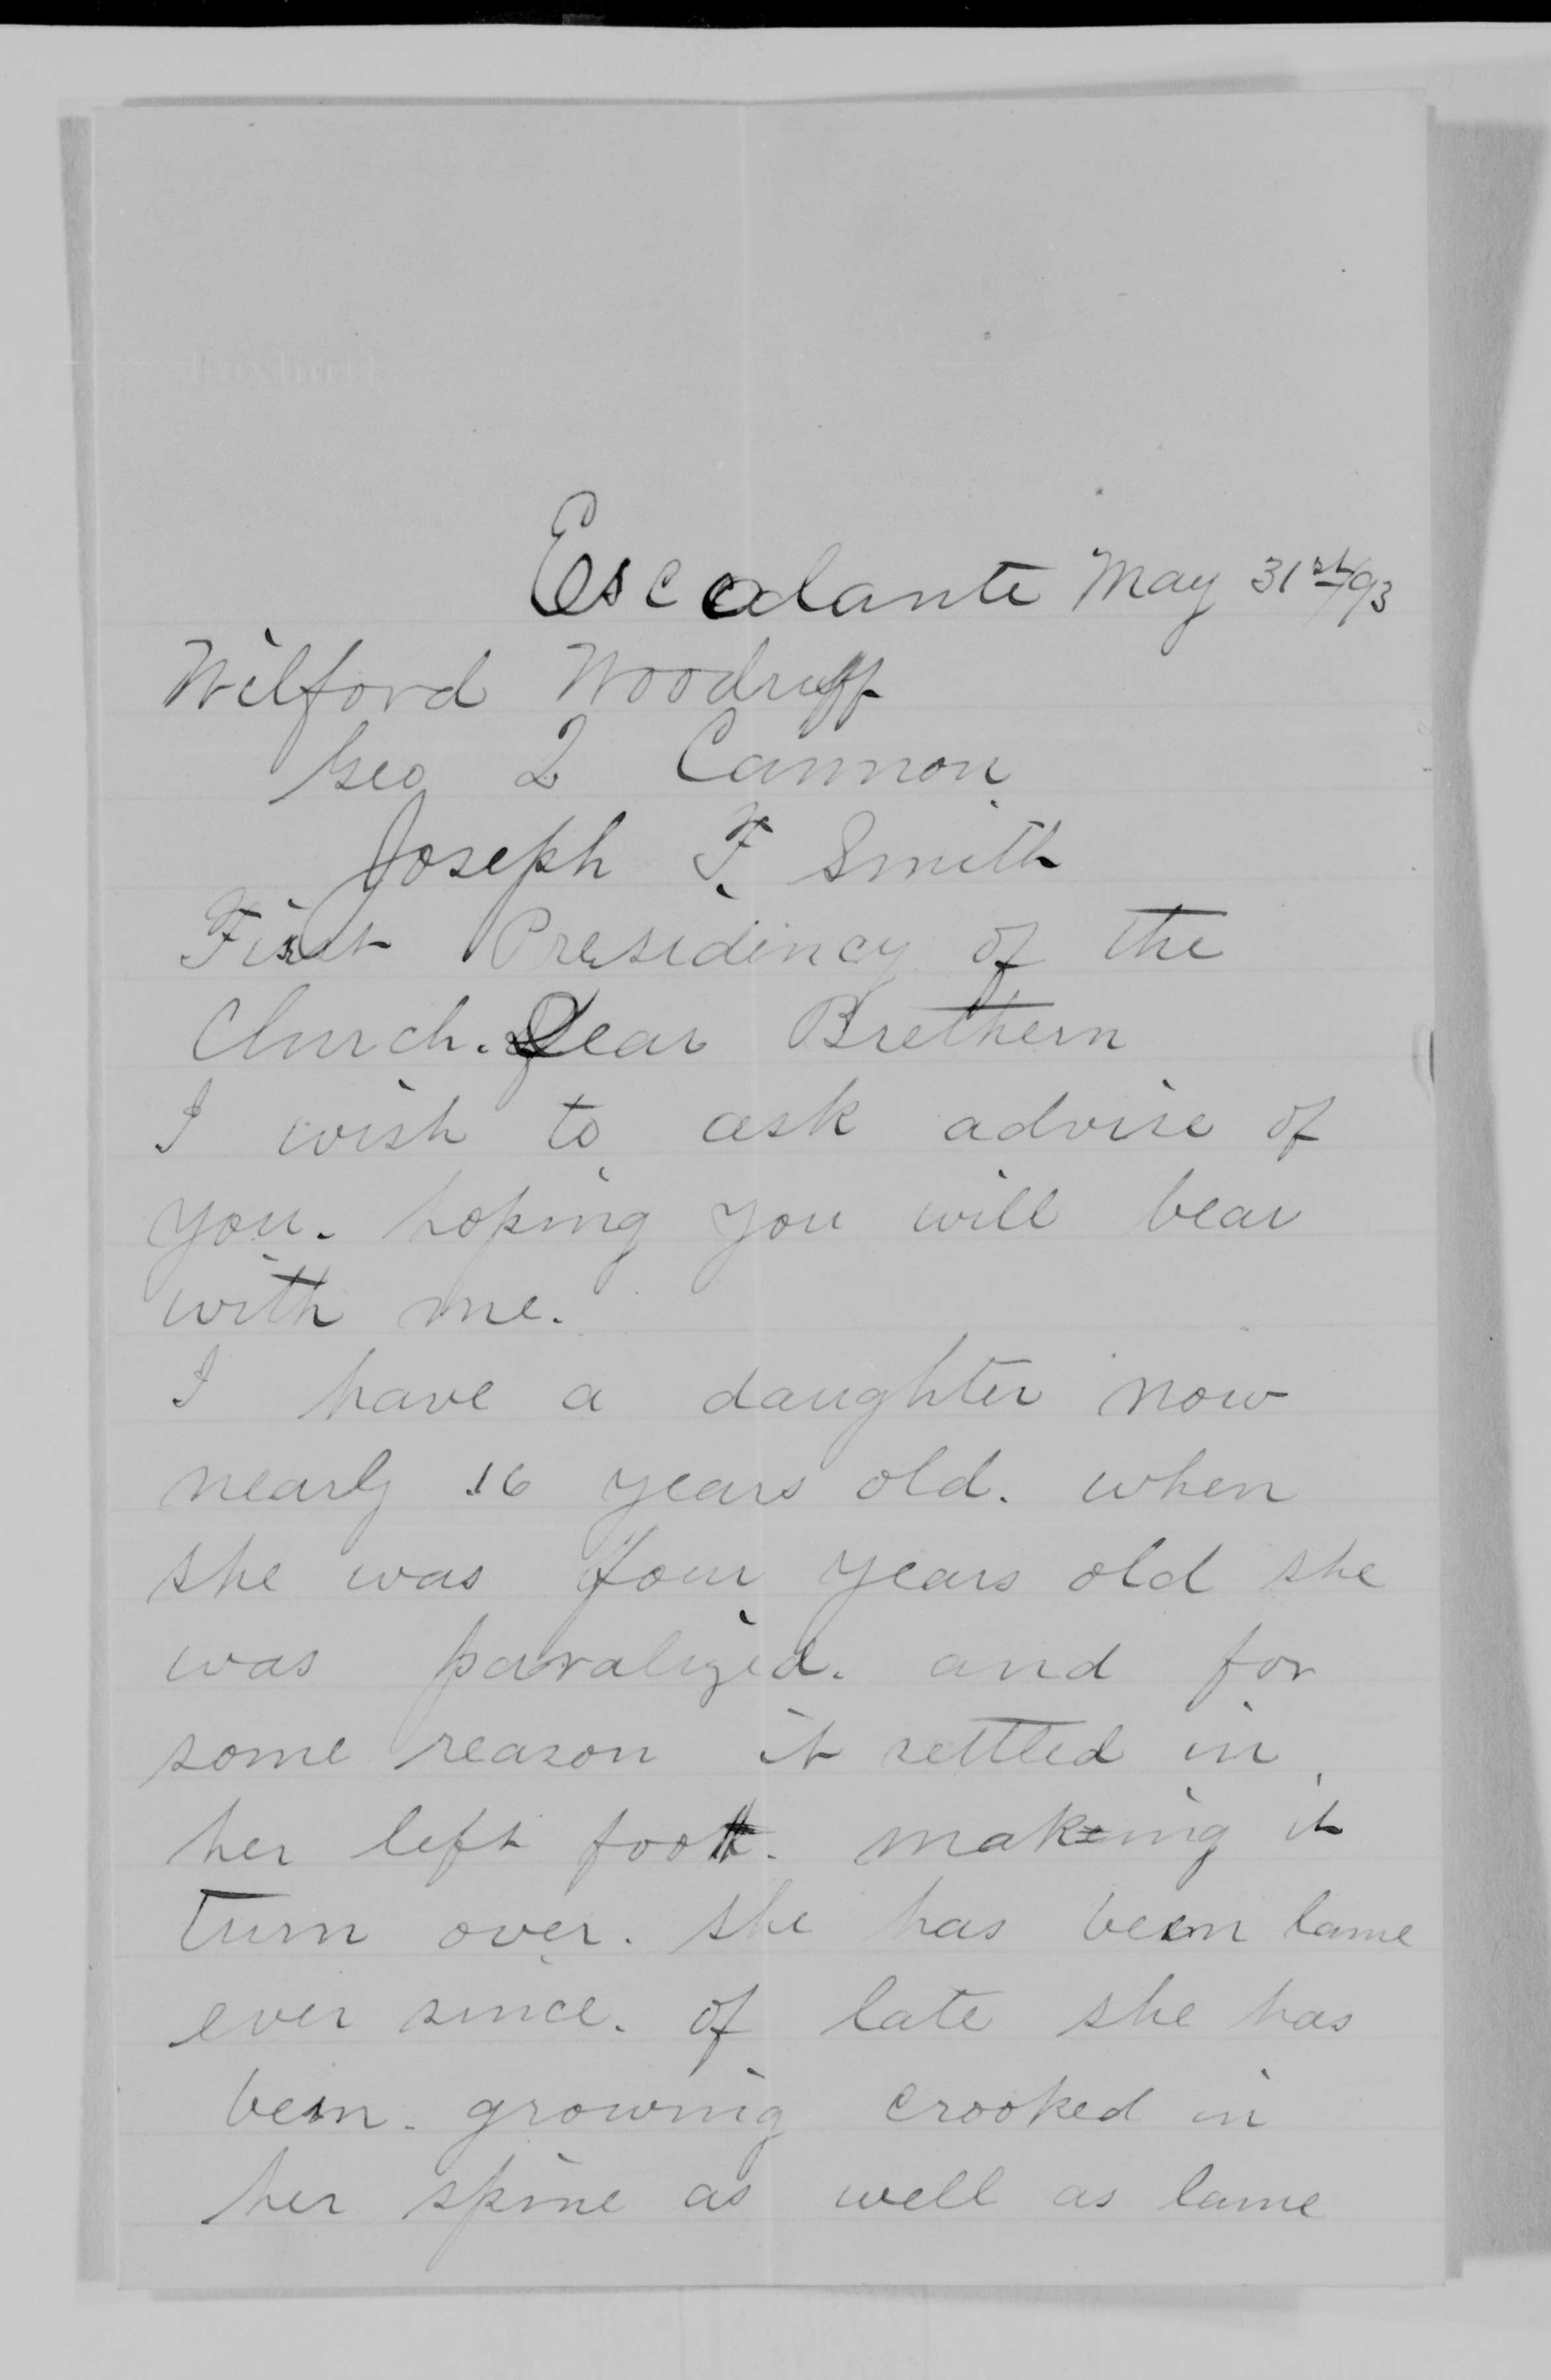 Escalante May 31st/93
Wilford Woodruff
Geo Q Cannon
Joseph F. Smith
First Presidency of the
Church. Dear Brethern
I wish to ask advise of
you. hoping you will bear
with me.
I have a daughter now
nearly 16 years old. when
she was four years old she
was paralized. and for
some reason it settled in
her left foot. making it
turn over. she has been lame
ever since. of late she has
been. growing crooked in
her spine as well as lame